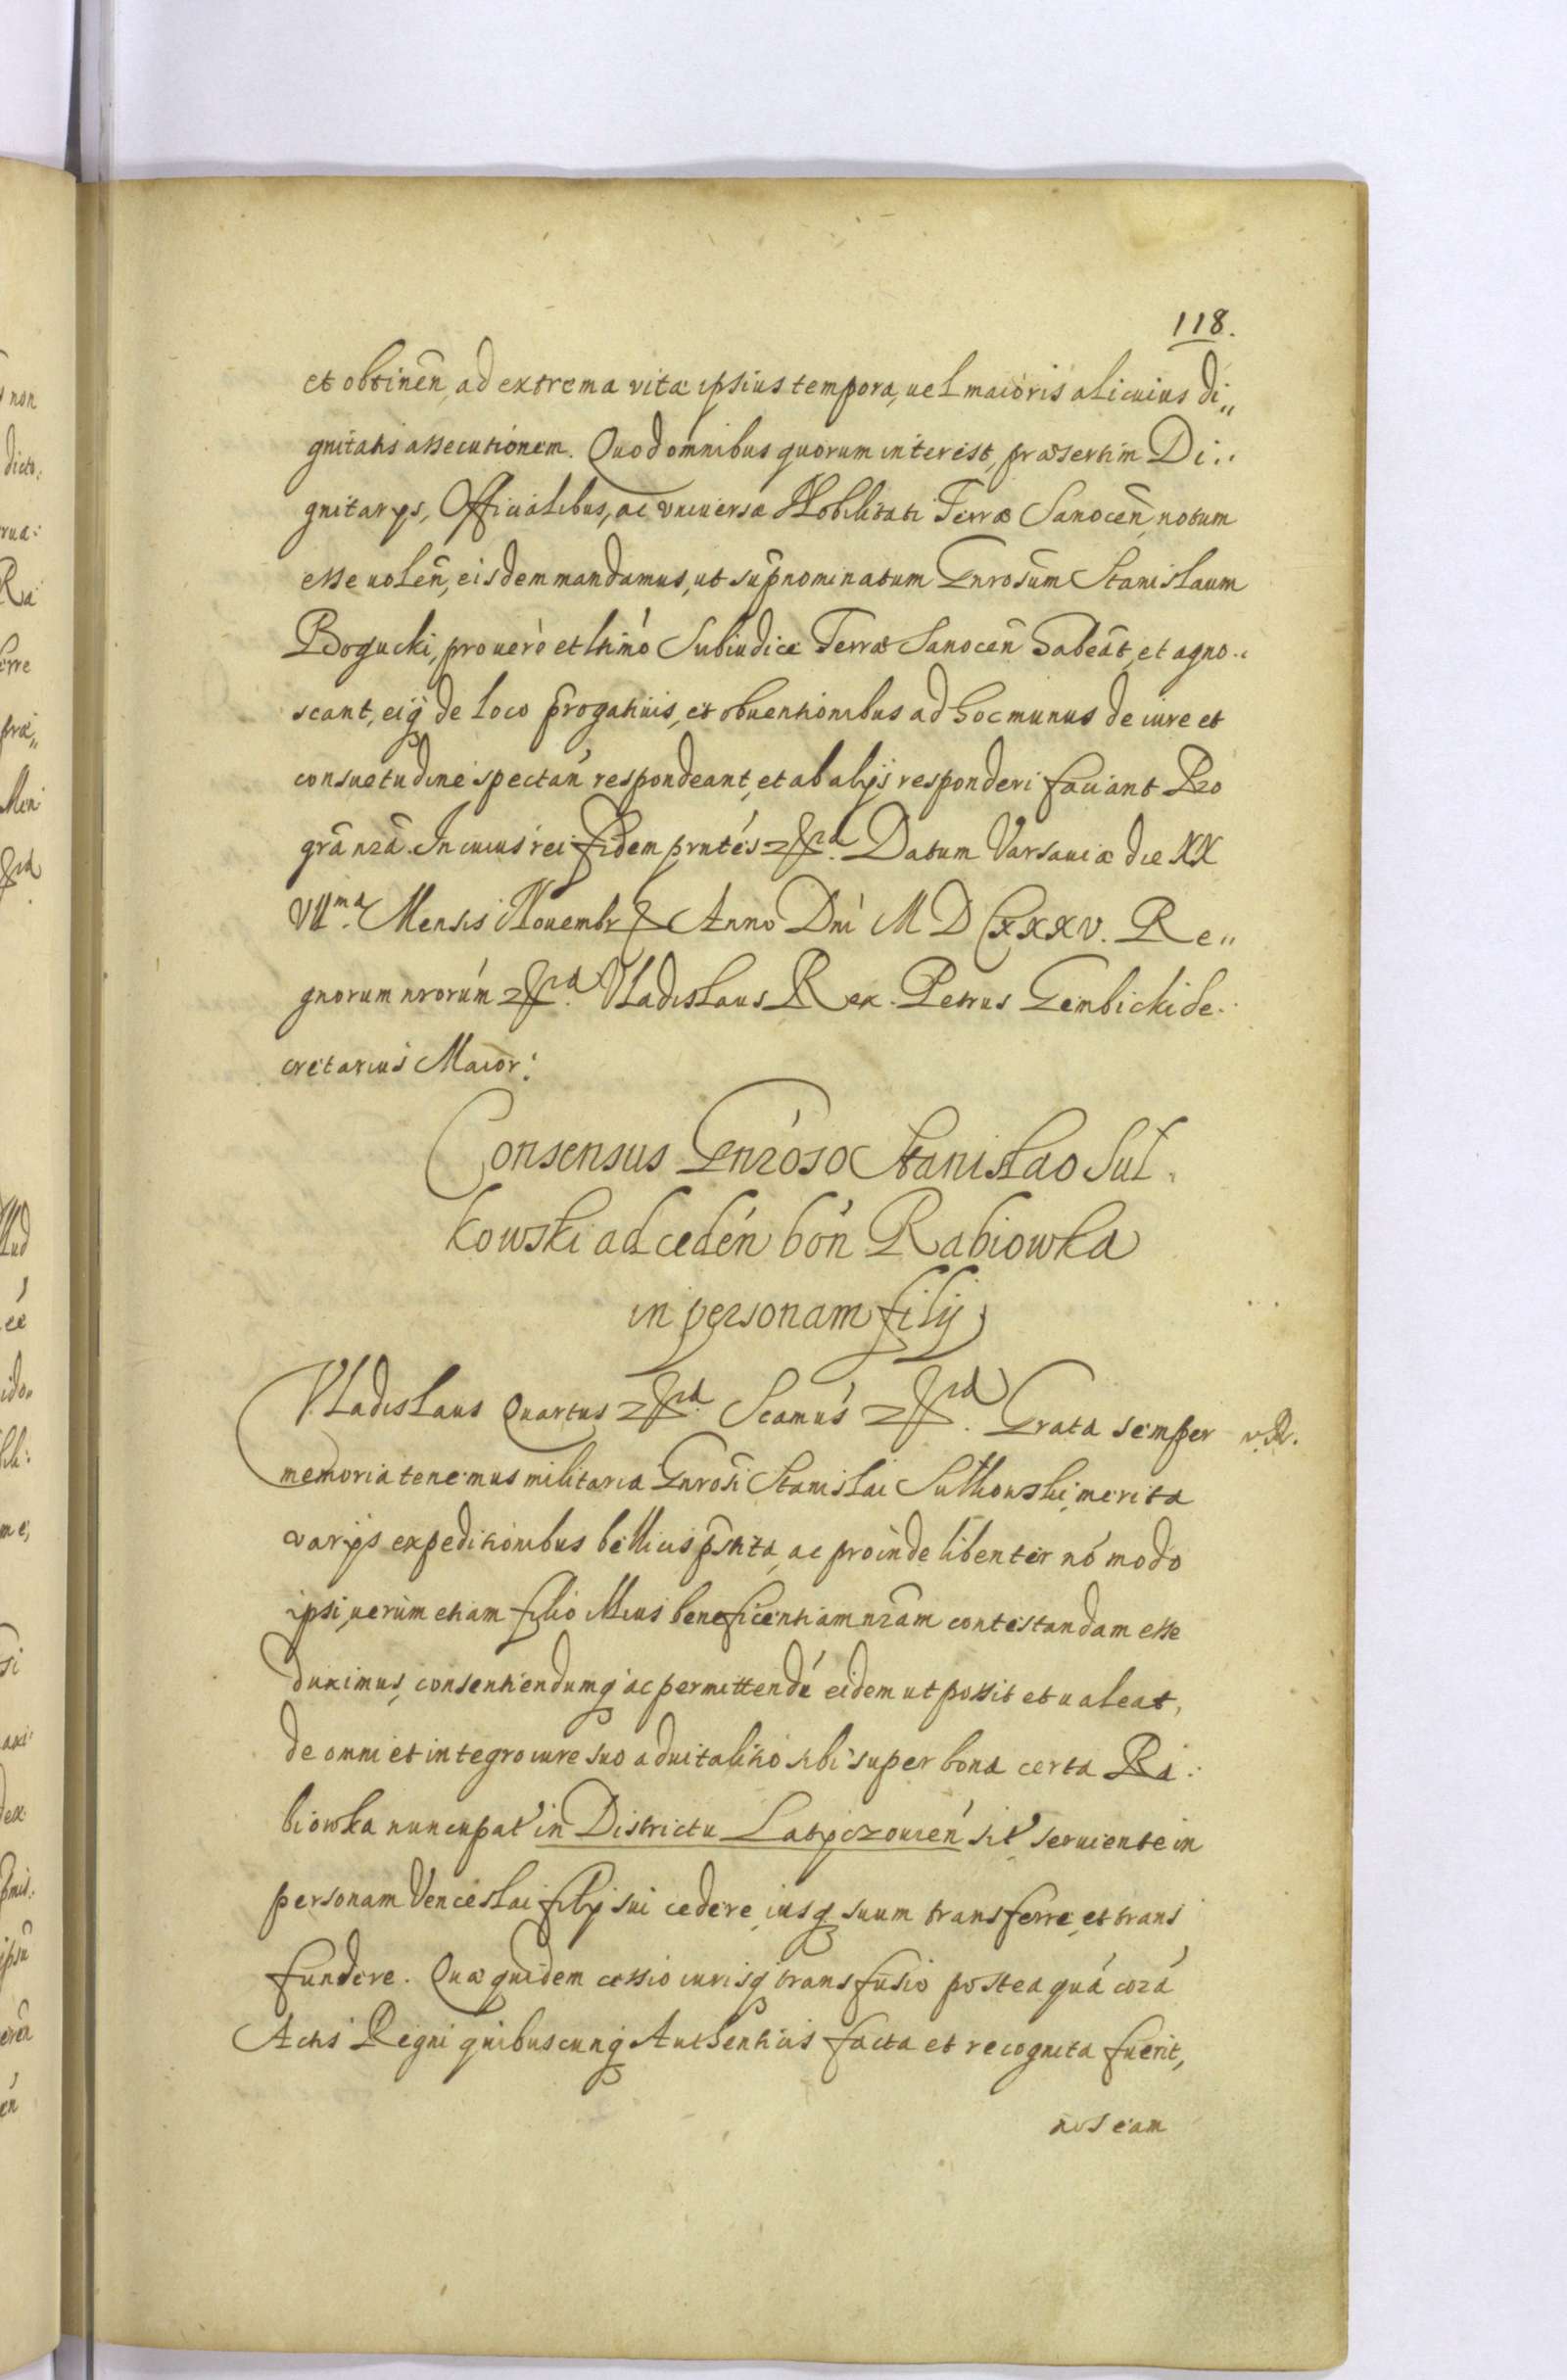 118.
et obtinen̄, ad extrema vitæ ipsius tempora, uel maioris alicuius di„
gnitatis assecutionem. Quod omnibus quorum interest, præsertim Di:.
gnitarys, Officialibus, ac vniuersæ Nobilitati Terræ Sanocen̄, notum
esse uolen̄, eisdem mandamus, ut sup̄nominatum Gnrosum Stanislaum
Bogucki, pro uero et ltimo Subiudice Terræ Sanocen̄ habeāt, et agno:
scant, eiq́ de loco p̄rogatiuis, et obuentionibus ad hoc munus de iure et
consuetudine spectan̄ respondeant, et ab alijs responderi faciant Pro
grā nrā. In cuius rei fidem prntés etc. Datum Varsauiæ die XX
VIIma. Mensis Nouembr Anno Dni M D CXXXV. Re„
gnorum nrorúm etc. Vladislaus Rex. Petrus Gembicki Se:
cretarius Maior:
Consensus Gnroso Stanislao Sul.
kowski ad ceden̄ bon̄ Rabiowka
in personam filij
Vladislaus Quartus etc. Scamus etc. Grata semper v. R.
memoria tenemus militaria Gnrosi Stanislai Sulkowski, merita
varijs expeditionibus bellicis pstita, ac proinde libenter nó modo
ipsi, uerùm etiam filio illius beneficentiam nram contestandam esse
duximus, consentiendumq́ ac permittendú eidem ut possit et ualeat,
de omni et integro iure suo aduitalitio sibi super bona certa Ra:
biowka nuncupat in Districtu Latyczouien̄ sit seruiente in
personam Venceslai filij sui cedere, iusq́ suum transferre, et trans
fundere. Quæ quidem cessio iurisq́ transfusio posteaquá corá
Actis Regni quibuscunq́ Authenticis facta et recognita fuerit,
nos eam